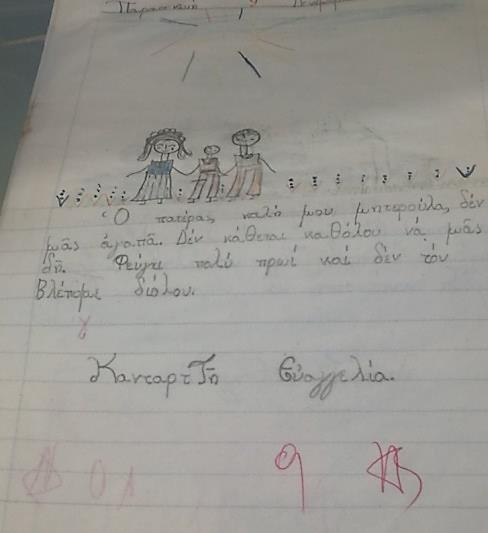 Παρασκευή
Ὁ πατέρας, καλή μου μητερούλα, δέν
μᾶς ἀγαπᾶ. Δέν κάθεται καθόλου νά μᾶς
δῆ. Φεύγει πολύ πρωί καί δέν τόν
βλέπουμε διόλου.
ΚανταρτΤῆ Εὐαγγελία.
9